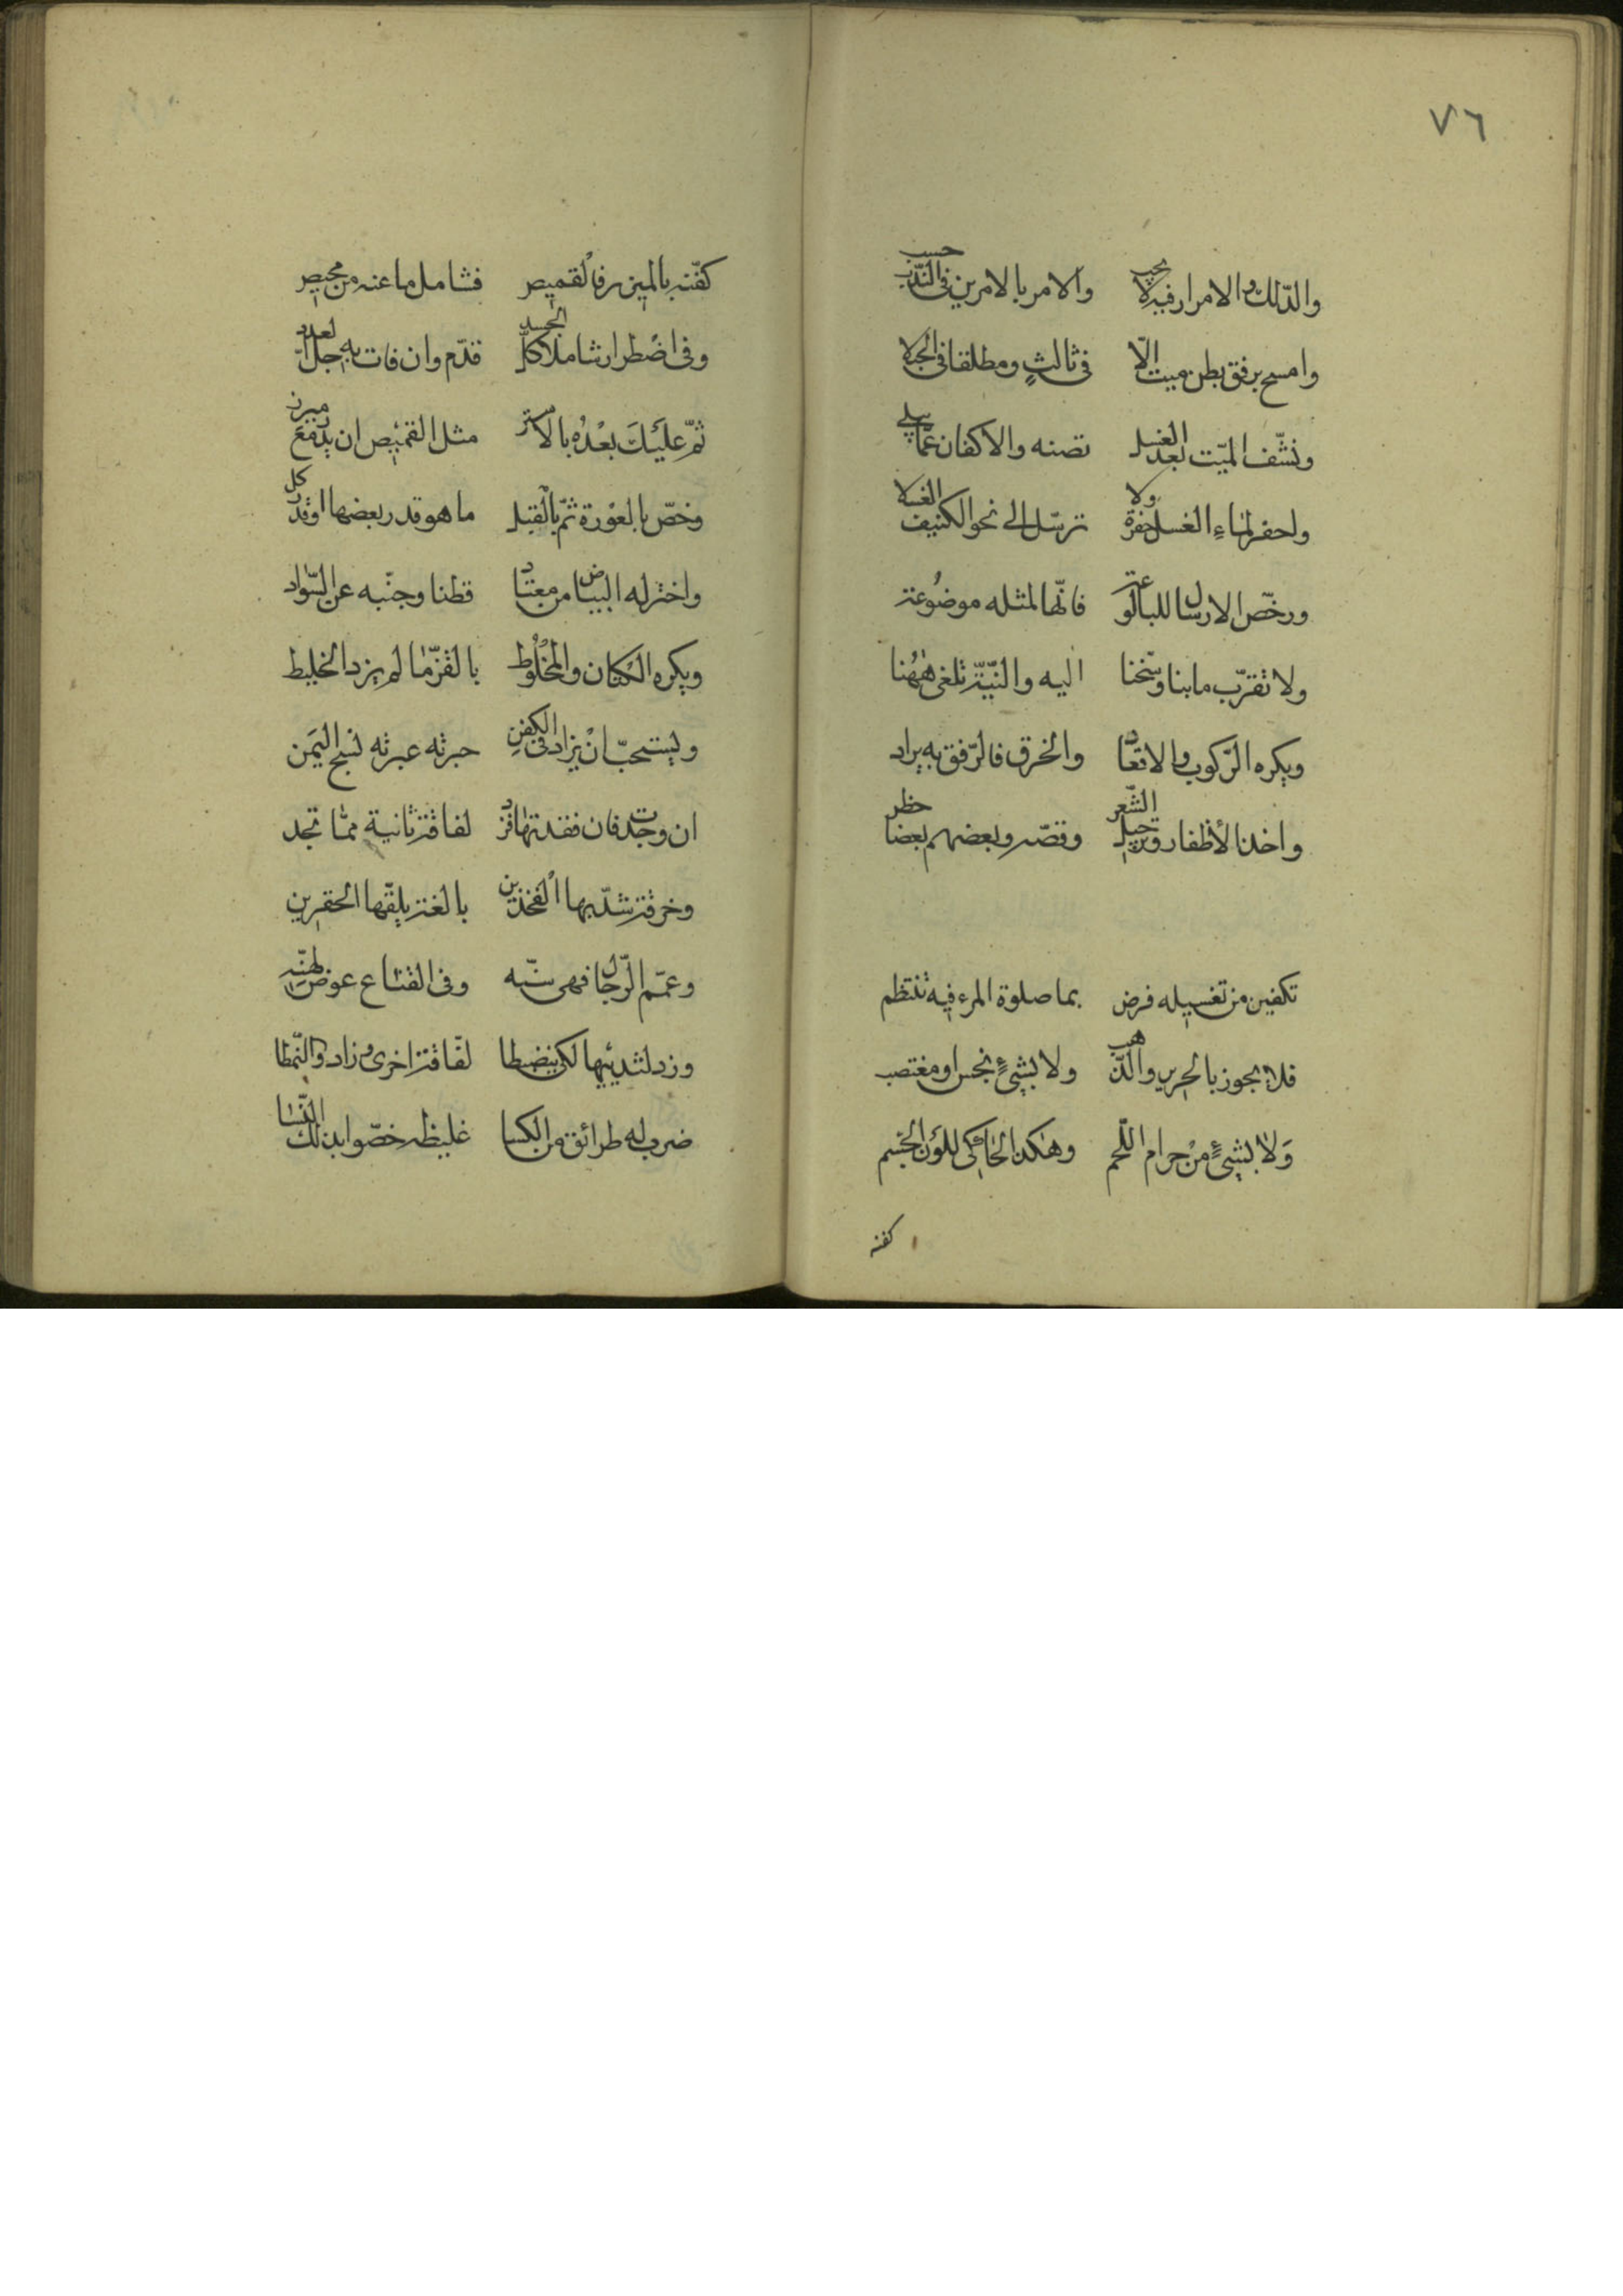 ٧٦
والدلك والامرار فيه لا يجب والامر بالامرين في الندب حسب
وامسح برفق بطن ميت الا في ثالث ومطلقا في الحبلى
ونشّف الميّت بعد الغسل تصنه والاكفان عمّا يبلي
واحفر لماء الغسل حفرة ولا ترسّل الى نحو الكنيف الغسلا
ورخّص الارسال للبالوعة فانّها لمثله موضوعة
ولا تقرّب ما بنا وسخنا اليه والنيّة تلغى ههنا
ويكره الرّكوب والاقعاد والخرق فالرّفق به يراد
واخذ الأظفار وترجيل الشّعر وقصّه وبعضهم بعضا حظر
تكفين من تغسيله فرض بما صلوة المرء فيه تنتظم
فلا يجوز بالحرير والذّهب ولا بشئ نجس او مغتصب
ولا بشئ من حرام اللّحم وهكذا الحاكى للون الجسم
كفنه
كفّنه بالميزر فالقميص فشامل ما عنه من محيص
وفى اضطرار شاملا كلّ الجسد قدّم وان فات به جلّ العدد
ثمّ عليك بعده بالاستر مثل القميص ان يدفع ميزر
وخصّ بالعورة ثمّ بالقبل ما هو قدر بعضها او قدر كل
واختر له البياض من معتاد قطنا وجنّبه عن السّواد
ويكره الكتان والمخلوط بالقزّ ما لم يزد الخليط
ويستحبّ ان يزاد فى الكفن حبرته عبرته نسج اليمن
ان وجدت فان فقدتها فزد لفافة ثانية ممّا تجد
وخرقة شدّ بها الفخذين بالغة يلفّها الحقوين
وعمّم الرّجال فهى سنّه وفى القناع عوض لهنّه
وزد لثدييها لكى ينضبطا لفّافة اخرى وزادوا النّمطا
ضرب له طرائق من الكسا غليظه خصّوا بذلك النّسا